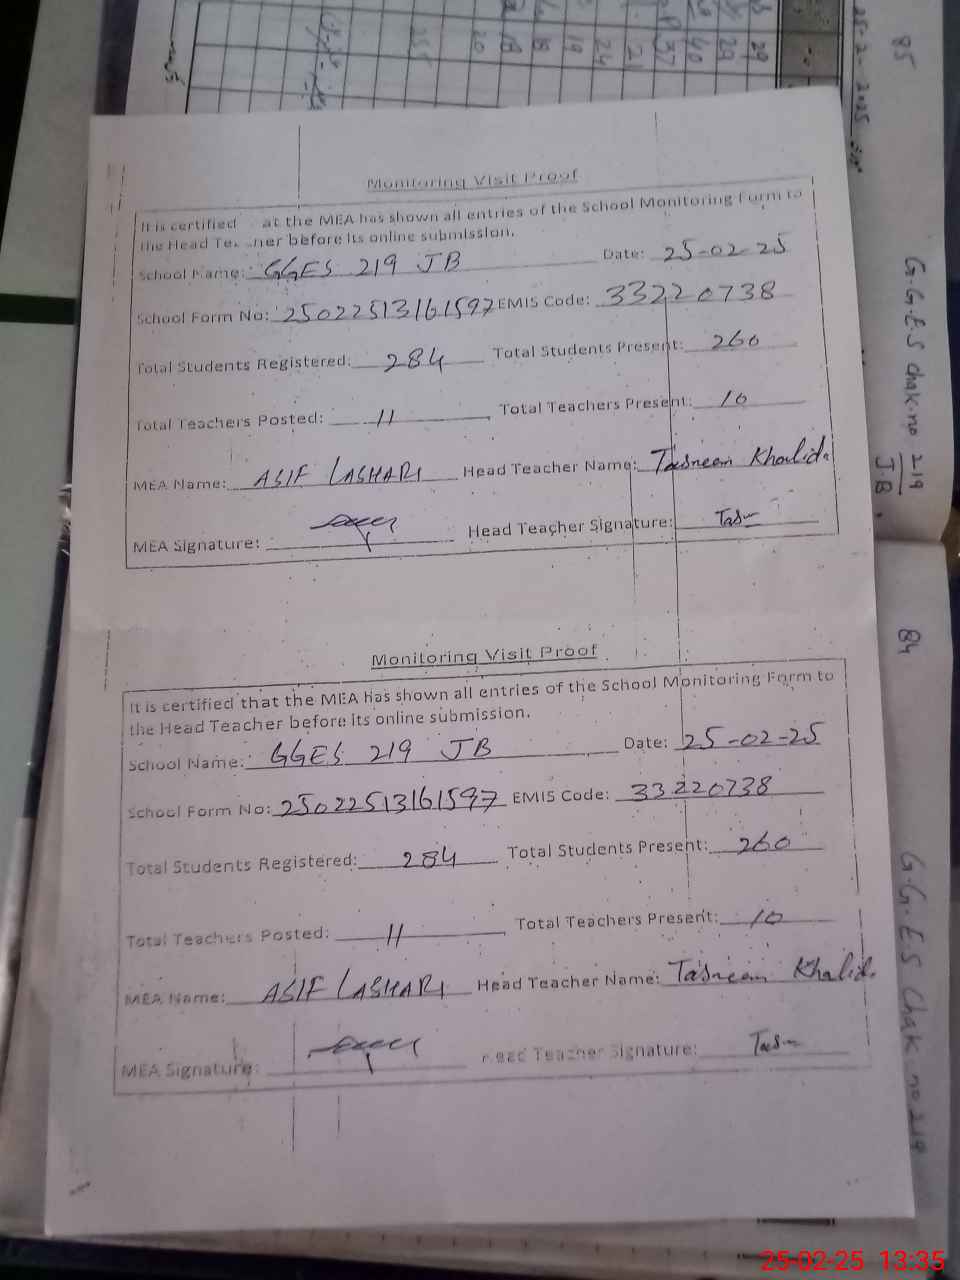 85
25-2-2025
20
19
24
21
37
40
29
29
Monitoring Visit Proof
It is certified at the MEA has shown all entries of the School Monitoring Form to
the Head Te ner before its online submission.
School Name: GGES 219 JB Date: 25-02-25
School Form No: 25022513161597 EMIS Code: 33220738
Total Students Registered: 284 Total Students Present: 260
Total Teachers Posted: 11 Total Teachers Present: 10
MEA Name: ASIF LASHARI Head Teacher Name: Tasneem Khalid.
MEA Signature: Head Teacher Signature: Tas
G.G.E.S Chak.no 219
J.B.
84
Monitoring Visit Proof
It is certified that the MEA has shown all entries of the School Monitoring Form to
the Head Teacher before its online submission.
School Name: GGES 219 JB Date: 25-02-25
School Form No: 25022513161597 EMIS Code: 33220738
Total Students Registered: 284 Total Students Present: 260
Total Teachers Posted: 11 Total Teachers Present: 10
MEA Name: ASIF LASHARI Head Teacher Name: Tasneem Khalid.
MEA Signature: Head Teacher Signature: Tas
G.G.E.S Chak no 219
25-02-25 13:35